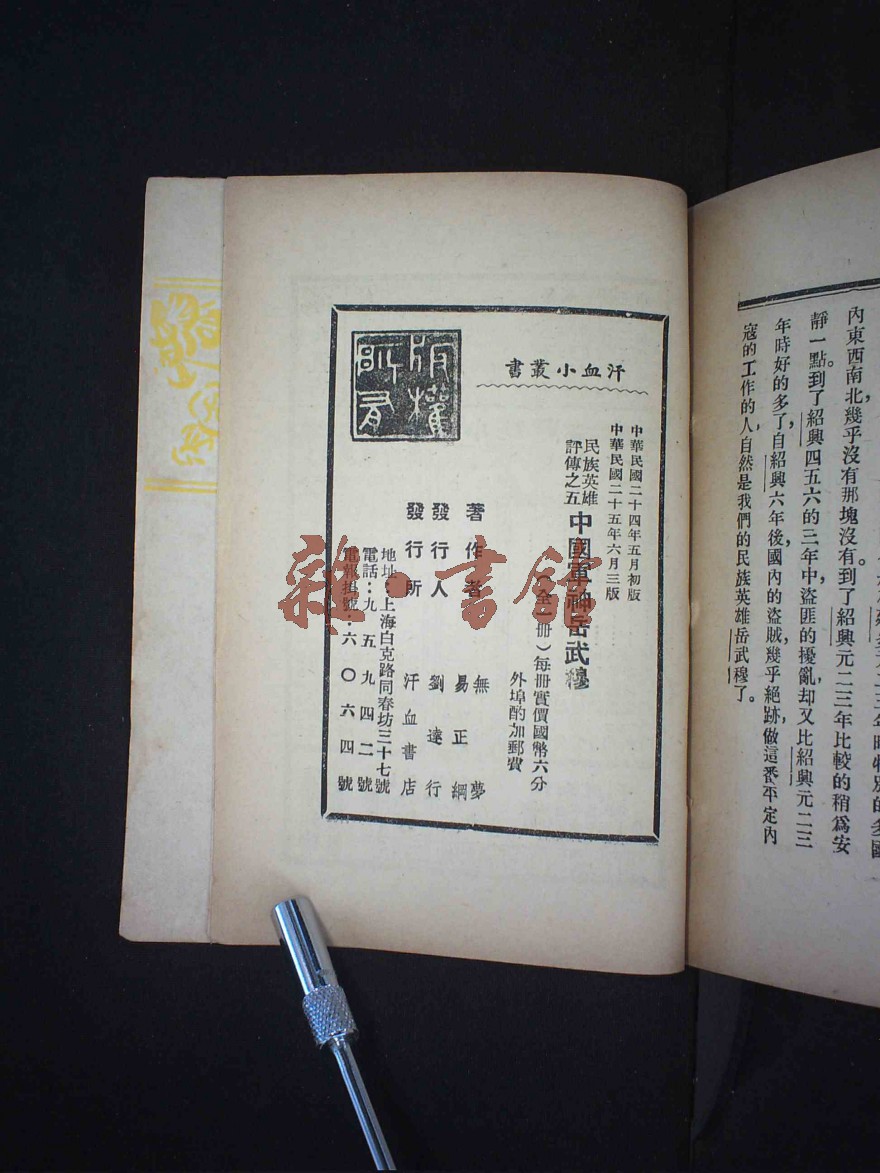 內東西南北幾乎沒有那塊沒有。到了紹興元二三年比較的稍爲安
靜一點。到了紹興四五六的三年中，盜匪的擾亂，却又比紹興元二三
年時好的多了，自紹興六年後，國內的盜賊幾乎絕跡，做這番平定內
寇的工作的人，自然是我們的民族英雄岳武穆了。
汗血小叢書
版權所有
中華民國二十四年五月初版
中華民國二十五年六月三版
民族英雄
評傳之五
中國軍神岳武穆
（全一冊）每冊實價國幣六分
外埠酌加郵費
著作者 無夢
易正綱
發行人 劉達行
發行所 汗血書店
地址：上海白克路同春坊三十七號
電話：九五九四二號
電報掛號：六〇六四號
雜·書館